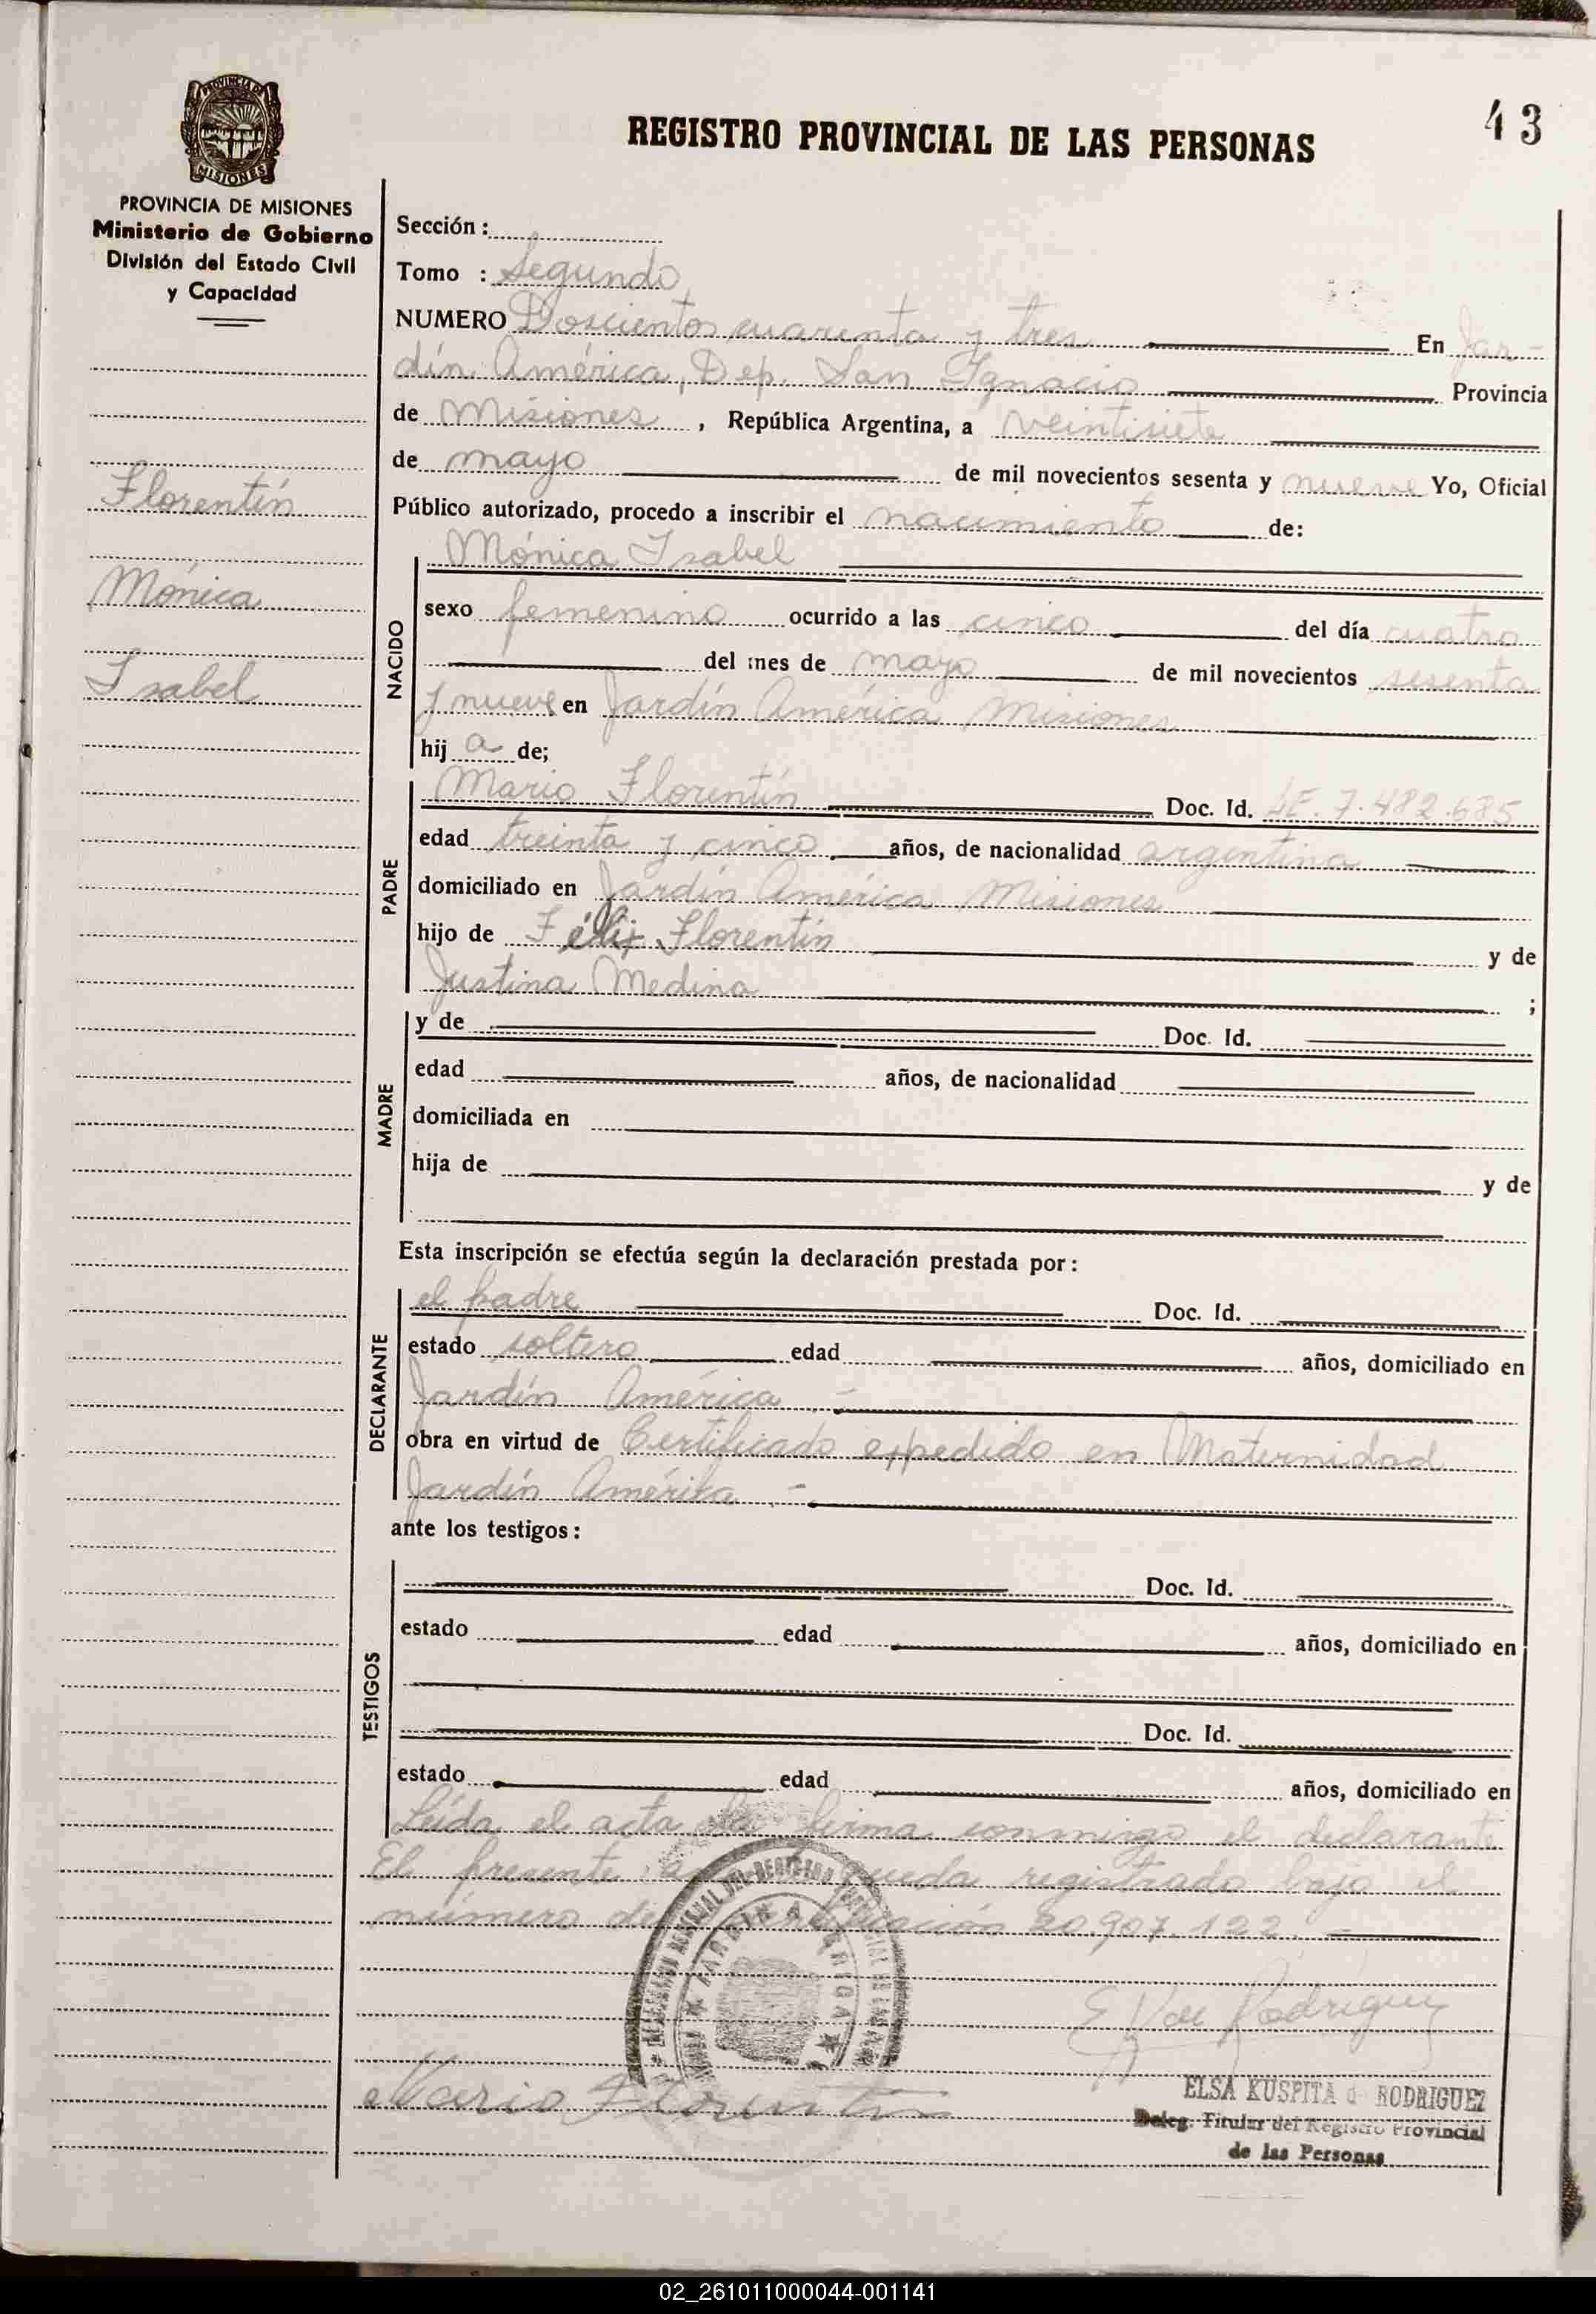 43
REGISTRO PROVINCIAL DE LAS PERSONAS
PROVINCIA DE
MISIONES
PROVINCIA DE MISIONES
Ministerio de Gobierno
División del Estado Civil
y Capacidad
Florentín
Mónica
Isabel
Sección :
Tomo : Segundo
NUMERO Doscientos cuarenta y tres En Jar-
dín América, Dep. San Ignacio Provincia
de Misiones , República Argentina, a veintisiete
de mayo de mil novecientos sesenta y nueve Yo, Oficial
Público autorizado, procedo a inscribir el nacimiento de:
NACIDO
Mónica Isabel
sexo femenino ocurrido a las cinco del día cuatro
del mes de mayo de mil novecientos sesenta
y nueve en Jardín América Misiones
hij a de;
PADRE
Mario Florentín Doc. Id. LE. 7.482.685
edad treinta y cinco años, de nacionalidad argentina
domiciliado en Jardín América Misiones
hijo de Félix Florentín y de
Justina Medina ;
MADRE
y de Doc. Id.
edad años, de nacionalidad
domiciliada en
hija de y de
Esta inscripción se efectúa según la declaración prestada por :
DECLARANTE
el padre Doc. Id.
estado soltero edad años, domiciliado en
Jardín América -
obra en virtud de Certificado expedido en Maternidad
Jardín América -
ante los testigos :
TESTIGOS
Doc. Id.
estado edad años, domiciliado en
Doc. Id.
estado edad años, domiciliado en
Leída el acta la firma conmingo el declarante
El presente queda registrado bajo el
número de 20.907.122.
E V de Rodriguez
Mario Florentin
ELSA KUSPITA d RODRIGUEZ
Deleg. Titular del Registro Provincial
de las Personas
02_261011000044-001141